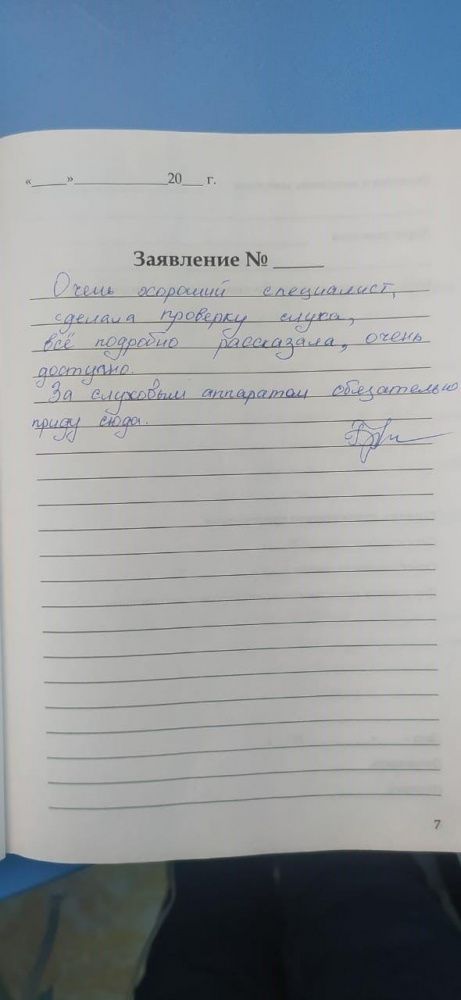 «_____»______________20___ г.
Заявление № _____
Очень хороший специалист,
сделала проверку слуха,
всё подробно рассказала, очень
доступно.
За слуховым аппаратом обязательно
приду сюда.
7